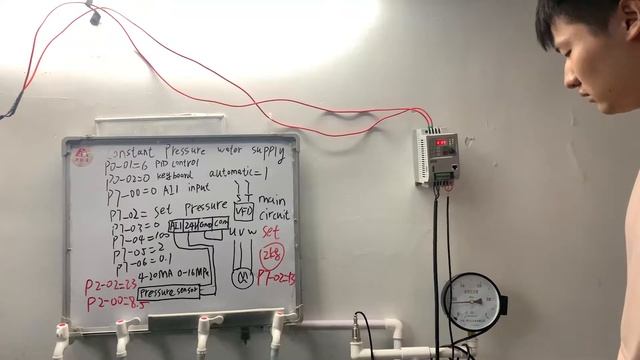 Constant Pressure water supply
P0-01=6 PID control
P0-02=0 keyboard
automatic=1
P7-00=0 AI1 input
P7-02= Set Pressure
P7-03=0
P7-04=100
P7-05=2
P7-06=0.1
AI1 24V Gnd com
R S T
VFD
main
circuit
U V W
4-20MA 0-16MPa
Pressure sensor
Set
P7-02=13
P2-02=23
P2-00=8.5